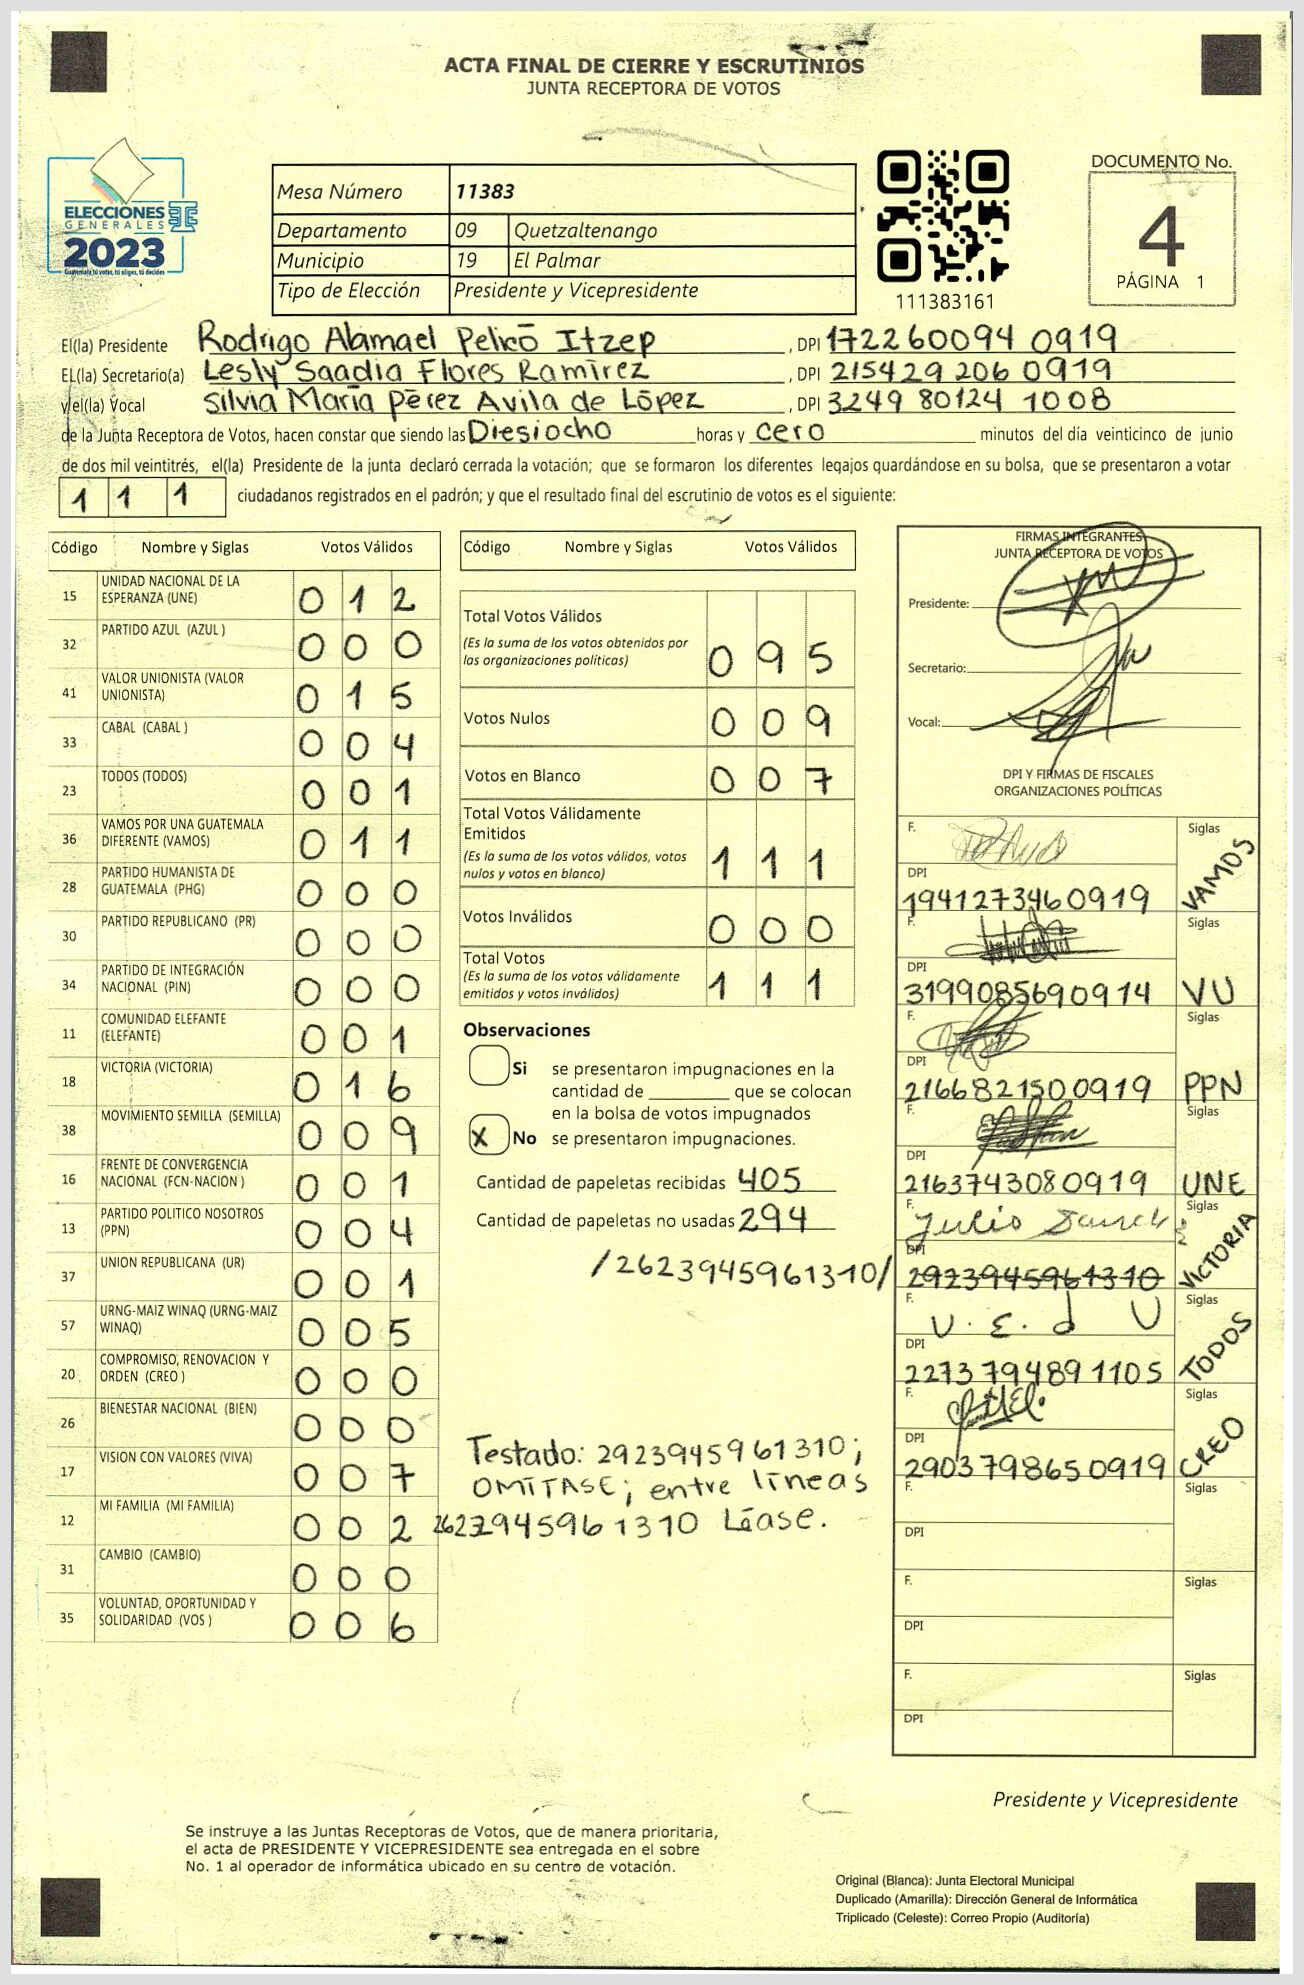 ACTA FINAL DE CIERRE Y ESCRUTINIOS
JUNTA RECEPTORA DE VOTOS
ELECCIONES
GENERALES
2023
Guatemala tú votas, tú eliges, tú decides
Mesa Número 11383
Departamento 09 Quetzaltenango
Municipio 19 El Palmar
Tipo de Elección Presidente y Vicepresidente
111383161
DOCUMENTO No.
4
PÁGINA 1
El(la) Presidente Rodrigo Abmael Pelicó Itzep, DPI 172260094 0919
EL(la) Secretario(a) Lesly Saadia Flores Ramírez, DPI 215429206 0919
y el(la) Vocal Silvia María Pérez Avila de López, DPI 3249 80124 1008
de la Junta Receptora de Votos, hacen constar que siendo las Diesiocho horas y cero minutos del día veinticinco de junio
de dos mil veintitrés, el(la) Presidente de la junta declaró cerrada la votación; que se formaron los diferentes legajos guardándose en su bolsa, que se presentaron a votar
1 1 1 ciudadanos registrados en el padrón; y que el resultado final del escrutinio de votos es el siguiente:
Código Nombre y Siglas Votos Válidos
15 UNIDAD NACIONAL DE LA
ESPERANZA (UNE) 0 1 2
32 PARTIDO AZUL (AZUL ) 0 0 0
41 VALOR UNIONISTA (VALOR
UNIONISTA) 0 1 5
33 CABAL (CABAL ) 0 0 4
23 TODOS (TODOS) 0 0 1
36 VAMOS POR UNA GUATEMALA
DIFERENTE (VAMOS) 0 1 1
28 PARTIDO HUMANISTA DE
GUATEMALA (PHG) 0 0 0
30 PARTIDO REPUBLICANO (PR) 0 0 0
34 PARTIDO DE INTEGRACIÓN
NACIONAL (PIN) 0 0 0
11 COMUNIDAD ELEFANTE
(ELEFANTE) 0 0 1
18 VICTORIA (VICTORIA) 0 1 6
38 MOVIMIENTO SEMILLA (SEMILLA) 0 0 9
16 FRENTE DE CONVERGENCIA
NACIONAL (FCN-NACION ) 0 0 1
13 PARTIDO POLITICO NOSOTROS
(PPN) 0 0 4
37 UNION REPUBLICANA (UR) 0 0 1
57 URNG-MAIZ WINAQ (URNG-MAIZ
WINAQ) 0 0 5
20 COMPROMISO, RENOVACION Y
ORDEN (CREO ) 0 0 0
26 BIENESTAR NACIONAL (BIEN) 0 0 0
17 VISION CON VALORES (VIVA) 0 0 7
12 MI FAMILIA (MI FAMILIA) 0 0 2
31 CAMBIO (CAMBIO) 0 0 0
35 VOLUNTAD, OPORTUNIDAD Y
SOLIDARIDAD (VOS ) 0 0 6
Código Nombre y Siglas Votos Válidos
Total Votos Válidos
(Es la suma de los votos obtenidos por
las organizaciones políticas) 0 9 5
Votos Nulos 0 0 9
Votos en Blanco 0 0 7
Total Votos Válidamente
Emitidos
(Es la suma de los votos válidos, votos
nulos y votos en blanco) 1 1 1
Votos Inválidos 0 0 0
Total Votos
(Es la suma de los votos válidamente
emitidos y votos inválidos) 1 1 1
Observaciones
Si se presentaron impugnaciones en la
cantidad de ________ que se colocan
en la bolsa de votos impugnados
X No se presentaron impugnaciones.
Cantidad de papeletas recibidas 405
Cantidad de papeletas no usadas 294
/2623945961310/
Testado: 2923945961310;
OMÍTASE; entre líneas
2623945961310 Léase.
FIRMAS INTEGRANTES
JUNTA RECEPTORA DE VOTOS
Presidente:
Secretario:
Vocal:
DPI Y FIRMAS DE FISCALES
ORGANIZACIONES POLÍTICAS
F. Siglas
DPI VAMOS
1941273460919
F. Siglas
DPI
3199085690914 VU
F. Siglas
DPI
2166821500919 PPN
F. Siglas
DPI
2163743080919 UNE
F. Julio Siglas
DPI VICTORIA
2923945961310
F. V. E. d U Siglas
DPI TODOS
2273794891105
F. Siglas
DPI CREO
2903798650919
F. Siglas
DPI
F. Siglas
DPI
F. Siglas
DPI
Presidente y Vicepresidente
Se instruye a las Juntas Receptoras de Votos, que de manera prioritaria,
el acta de PRESIDENTE Y VICEPRESIDENTE sea entregada en el sobre
No. 1 al operador de informática ubicado en su centro de votación.
Original (Blanca): Junta Electoral Municipal
Duplicado (Amarilla): Dirección General de Informática
Triplicado (Celeste): Correo Propio (Auditoría)